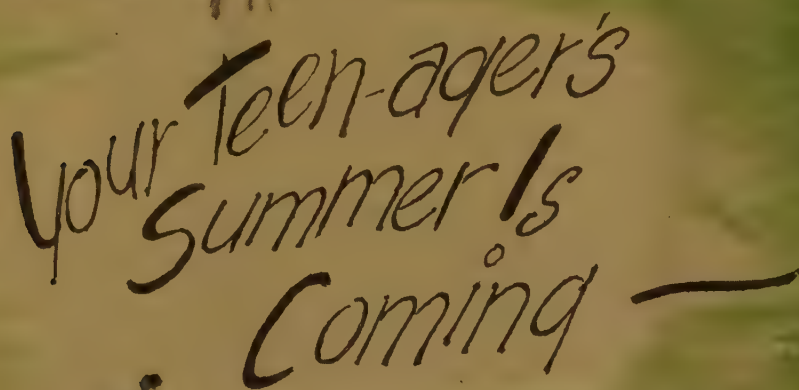 Your Teen-ager's
Summer Is
Coming —